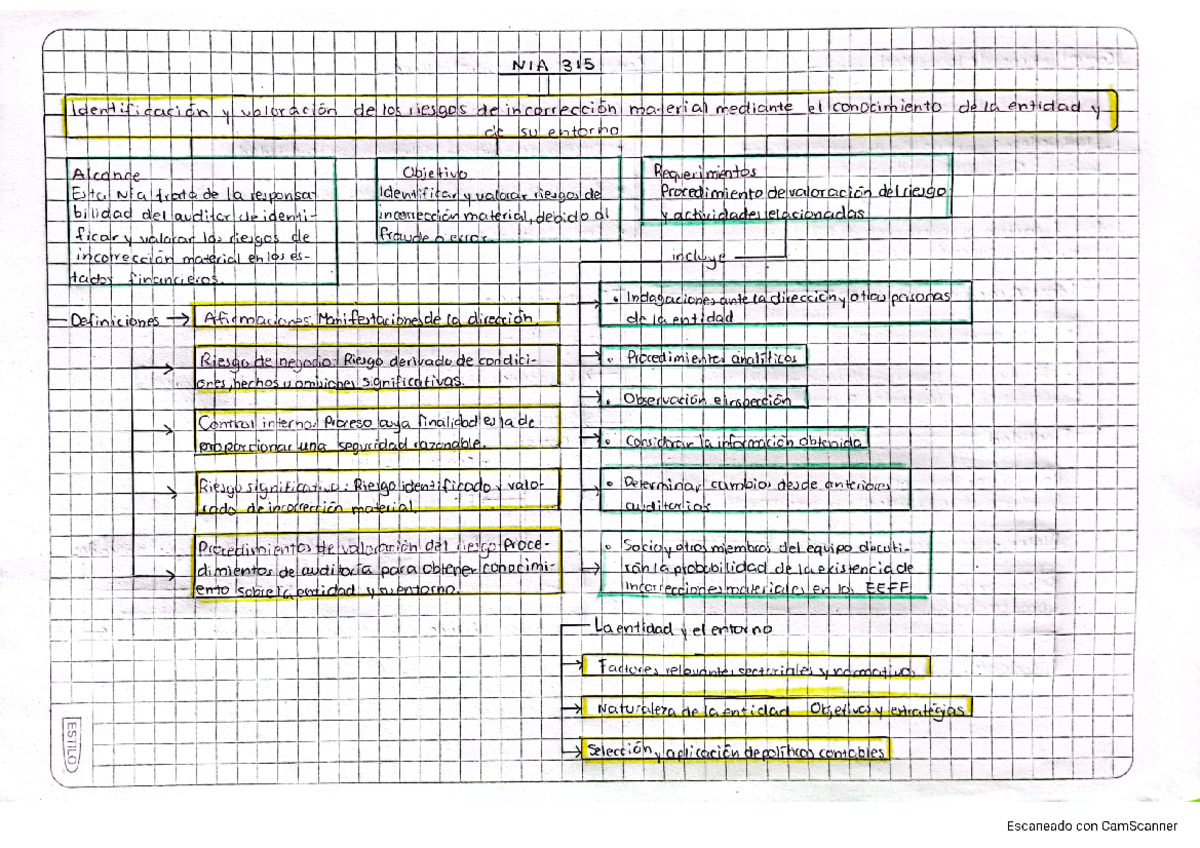 NIA 315
Identificación y valoración de los riesgos de incorrección material mediante el conocimiento de la entidad y
de su entorno
Alcance
Esta NIA trata de la responsa
bilidad del auditor de identi-
ficar y valorar los riesgos de
incorrección material en los es-
tados financieros.
Objetivo
Identificar y valorar riesgos de
incorrección material, debido al
fraude o error.
Requerimientos
Procedimiento de valoración del riesgo
y actividades relacionadas
incluye
Definiciones
Afirmaciones: Manifestaciones de la dirección.
Riesgo de negocio: Riesgo derivado de condici-
ones, hechos u omisiones significativas.
Control interno: Proceso cuya finalidad es la de
proporcionar una seguridad razonable.
Riesgo significativo: Riesgo identificado y valo-
rado de incorrección material.
Procedimientos de valoración del riesgo: Proce-
dimientos de auditoría para obtener conocimi-
ento sobre la entidad y su entorno.
• Indagaciones ante la dirección y otras personas
de la entidad
• Procedimientos analíticos
• Observación e inspección
• Considerar la información obtenida
• Determinar cambios desde anteriores
auditorias
• Socio y otros miembros del equipo discuti-
rán la probabilidad de la existencia de
incorrecciones materiales en los EEFF
La entidad y el entorno
Factores relevantes sectoriales y normativos
Naturaleza de la entidad Objetivos y estratégias
Selección y aplicación de políticas contables
ESTILO
Escaneado con CamScanner